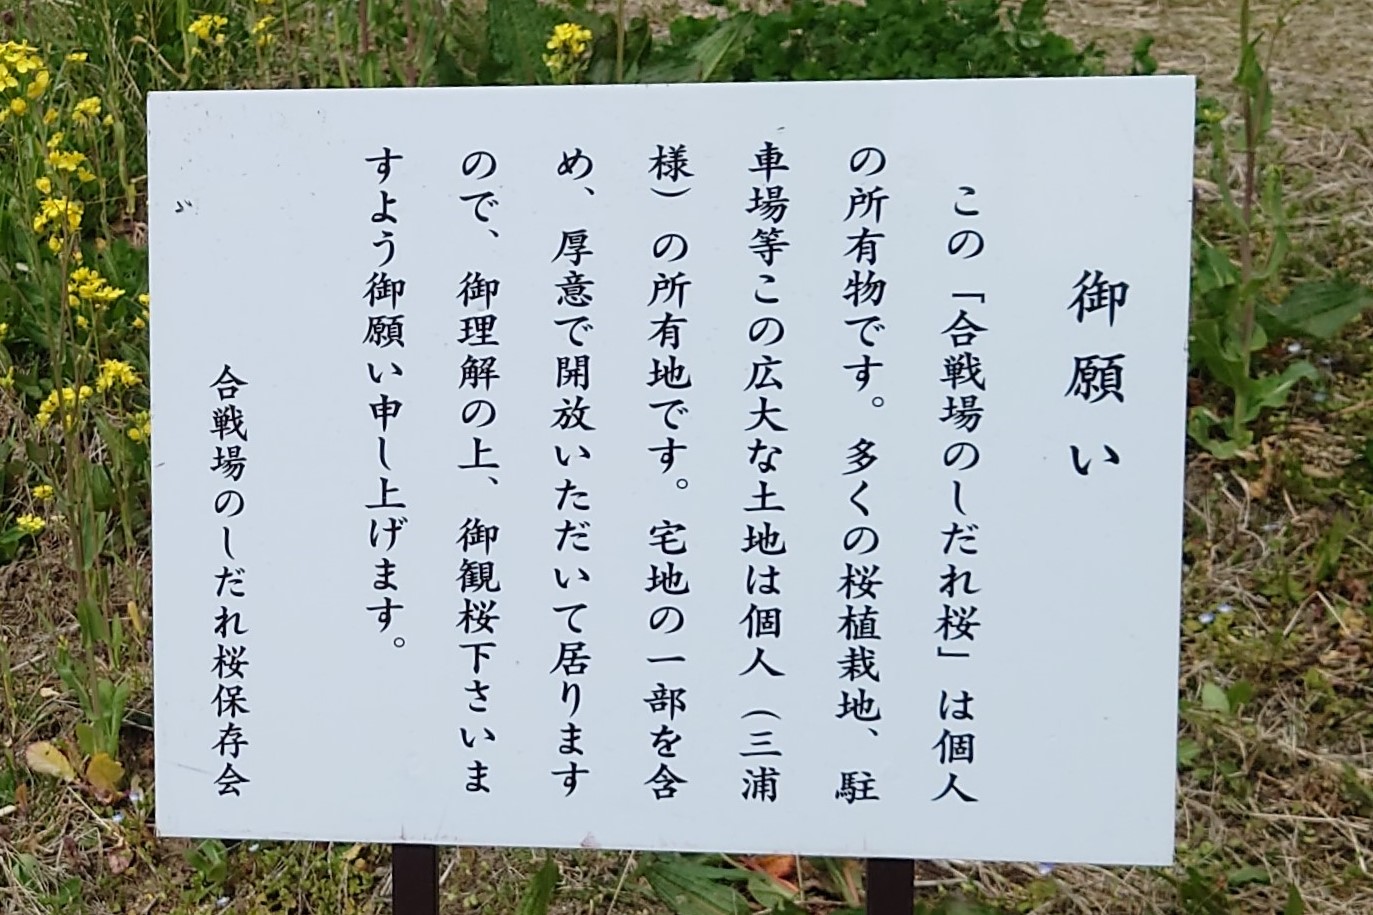 御願い
この「合戦場のしだれ桜」は個人
の所有物です。多くの桜植栽地、駐
車場等この広大な土地は個人（三浦
様）の所有地です。宅地の一部を含
め、厚意で開放いただいて居ります
ので、御理解の上、御観桜下さいま
すよう御願い申し上げます。
合戦場のしだれ桜保存会